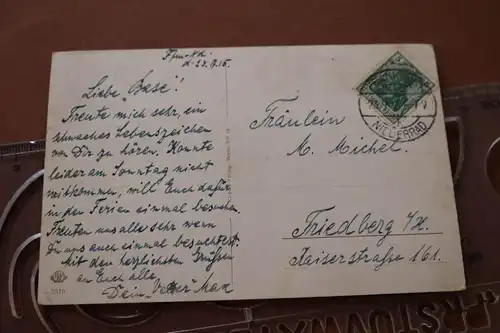 Ffm-Nd.
d. 23.9.15.
Liebe „Base“!
Freute mich sehr, ein
schwaches Lebenszeichen
von Dir zu hören. Konnte
leider am Sonntag nicht
mitkommen, will Euch dafür
in den Ferien einmal besuchen.
Freuten uns alle sehr wenn
Du uns auch einmal besuchtest.
Mit den herzlichsten Grüßen
an Euch alle,
Dein „Vetter“ Max
Fräulein
M. Michel.
Friedberg i/H.
Kaiserstraße 161.
NIEDERRAD